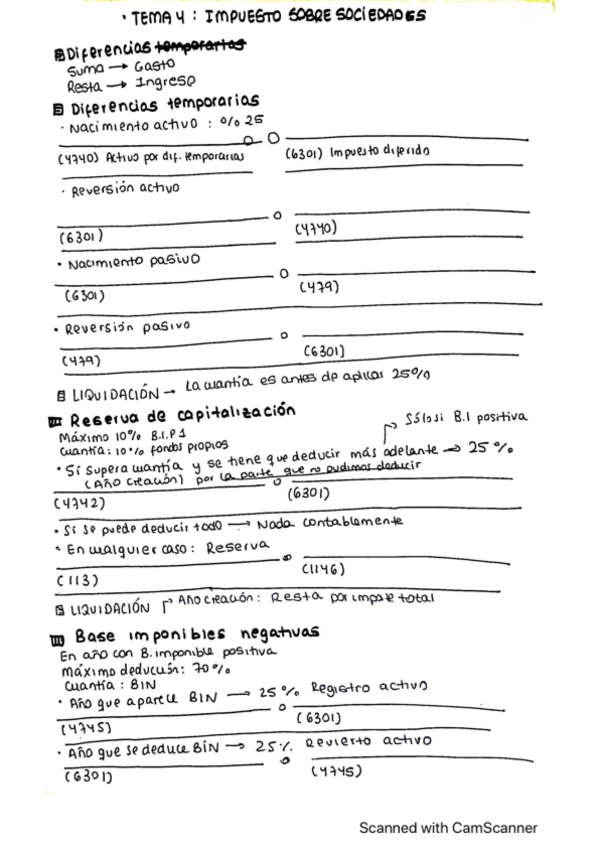 · TEMA 4 : IMPUESTO SOBRE SOCIEDADES
Diferencias temporarias
Suma → Gasto
Resta → Ingreso
Diferencias temporarias
· Nacimiento activo : % 25
(4740) Activo por dif. temporarias (6301) Impuesto diferido
· Reversión activo
(6301) (4740)
· Nacimiento pasivo
(6301) (479)
· Reversión pasivo
(479) (6301)
LIQUIDACIÓN → La cuantía es antes de aplicar 25%
III Reserva de capitalización
Sólo si B.I positiva
Máximo 10% B.I.P1
Cuantía: 10% fondos propios
· Si supera cuantía y se tiene que deducir más adelante → 25%
(AÑO CREACIÓN) por la parte que no pudimos deducir
(4742) (6301)
· Si se puede deducir todo → Nada contablemente
· En cualquier caso: Reserva
(113) (1146)
LIQUIDACIÓN Año creación: Resta por importe total
III Base imponibles negativas
En año con B. imponible positiva
Máximo deducción: 70%
Cuantía : BIN
· Año que aparece BIN → 25% Registro activo
(4745) (6301)
· Año que se deduce BIN → 25% Revierto activo
(6301) (4745)
Scanned with CamScanner